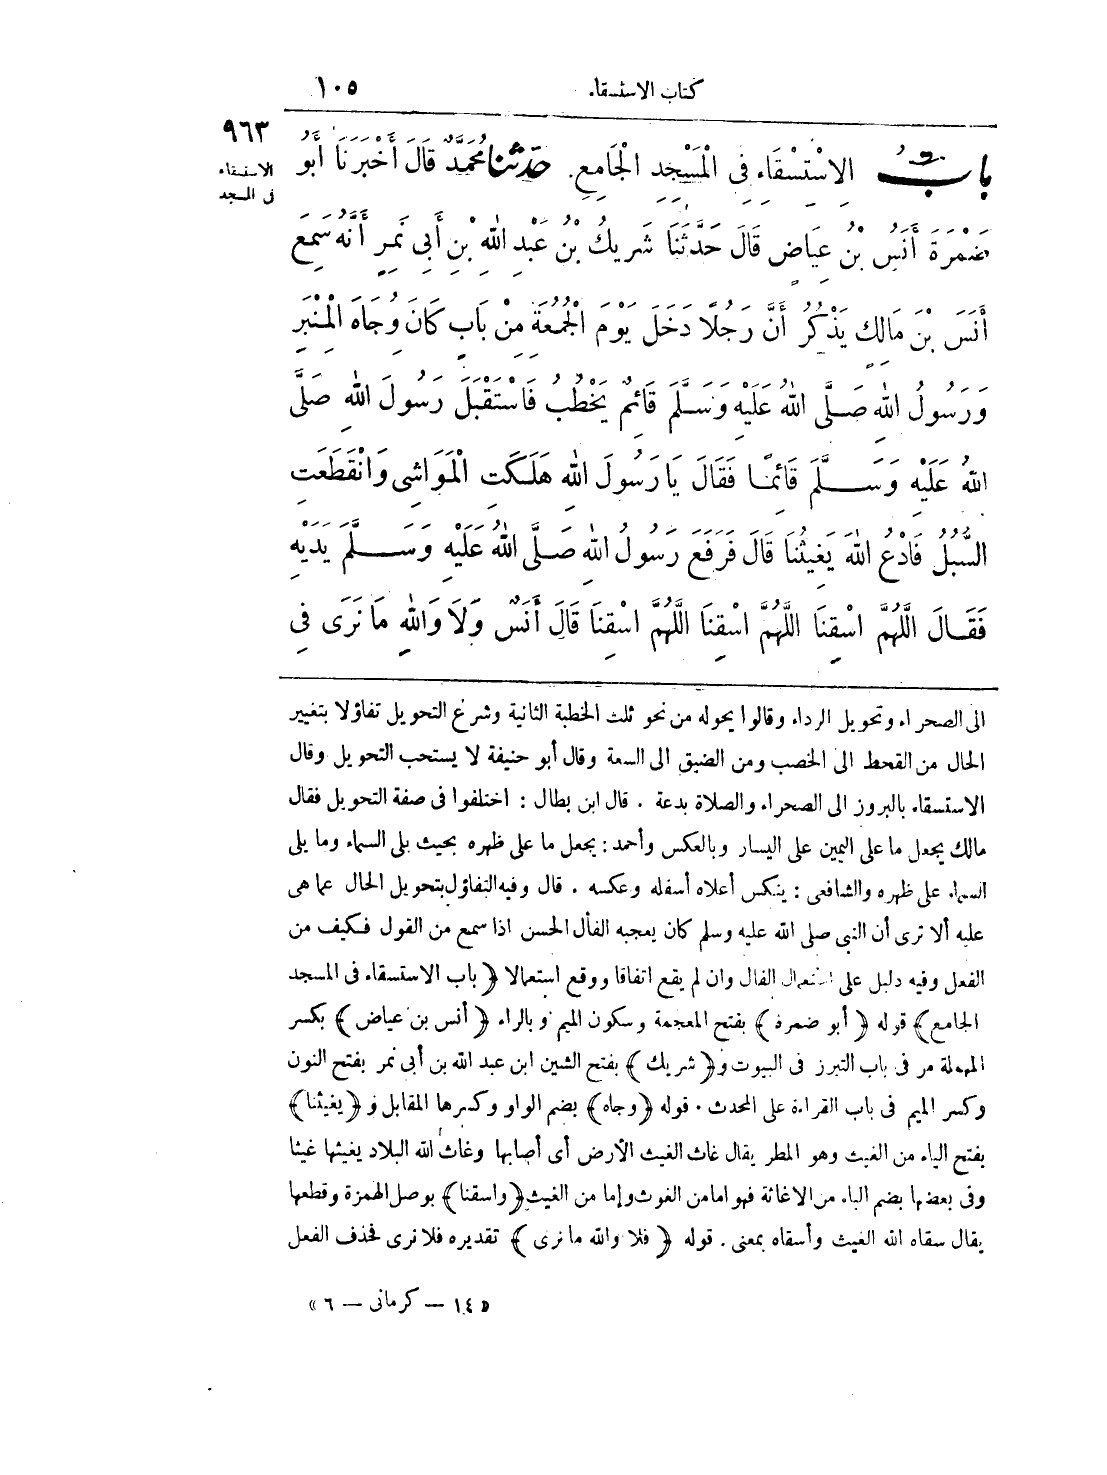 كتاب الاستسقاء
١٠٥
٩٦٣
الاستسقاء
فى المسجد
بابُ الِاسْتِسْقَاءِ فِى الْمَسْجِدِ الْجَامِعِ. حَدَّثَنَا مُحَمَّدٌ قَالَ أَخْبَرَنَا أَبُو
ضَمْرَةَ أَنَسُ بْنُ عِيَاضٍ قَالَ حَدَّثَنَا شَرِيكُ بْنُ عَبْدِ اللهِ بْنِ أَبِى نَمِرٍ أَنَّهُ سَمِعَ
أَنَسَ بْنَ مَالِكٍ يَذْكُرُ أَنَّ رَجُلًا دَخَلَ يَوْمَ الْجُمُعَةِ مِنْ بَابٍ كَانَ وُجَاهَ الْمِنْبَرِ
وَرَسُولُ اللهِ صَلَّى اللهُ عَلَيْهِ وَسَلَّمَ قَائِمٌ يَخْطُبُ فَاسْتَقْبَلَ رَسُولَ اللهِ صَلَّى
اللهُ عَلَيْهِ وَسَلَّمَ قَائِمًا فَقَالَ يَا رَسُولَ اللهِ هَلَكَتِ الْمَوَاشِى وَانْقَطَعَتِ
السُّبُلُ فَادْعُ اللهَ يَغِيثُنَا قَالَ فَرَفَعَ رَسُولُ اللهِ صَلَّى اللهُ عَلَيْهِ وَسَلَّمَ يَدَيْهِ
فَقَالَ اللَّهُمَّ اسْقِنَا اللَّهُمَّ اسْقِنَا اللَّهُمَّ اسْقِنَا قَالَ أَنَسٌ وَلَا وَاللهِ مَا نَرَى فِى
الى الصحراء وتحويل الرداء وقالوا يحوله من نحو ثلث الخطبة الثانية وشرع التحويل تفاؤلا بتغيير
الحال من القحط الى الخصب ومن الضيق الى السعة وقال أبو حنيفة لا يستحب التحويل وقال
الاستسقاء بالبروز الى الصحراء والصلاة بدعة . قال ابن بطال : اختلفوا فى صفة التحويل فقال
مالك يجعل ما على اليمين على اليسار وبالعكس وأحمد: يجعل ما على ظهره بحيث يلى السماء وما يلى
السماء على ظهره والشافعى : ينكس أعلاه أسفله وعكسه . قال وفيه التفاؤل بتحويل الحال عما هى
عليه ألا ترى أن النبى صلى الله عليه وسلم كان يعجبه الفأل الحسن اذا سمع من القول فكيف من
الفعل وفيه دليل على استعمال الفال وان لم يقع اتفاقا ووقع استعمالا ﴿باب الاستسقاء فى المسجد
الجامع﴾ قوله ﴿أبو ضمرة﴾ بفتح المعجمة وسكون الميم وبالراء ﴿أنس بن عياض﴾ بكسر
المهملة مر فى باب التبرز فى البيوت و﴿شريك﴾ بفتح الشين ابن عبد الله بن أبى نمر بفتح النون
وكسر الميم فى باب القراءة على المحدث . قوله ﴿وجاه﴾ بضم الواو وكسرها المقابل و﴿يغيثنا﴾
بفتح الياء من الغيث وهو المطر يقال غاث الغيث الأرض أى أصابها وغاث الله البلاد يغيثها غيثا
وفى بعضها بضم الياء من الاغاثة فهو اما من الغوث وإما من الغيث ﴿واسقنا﴾ بوصل الهمزة وقطعها
يقال سقاه الله الغيث وأسقاه بمعنى . قوله ﴿فلا والله ما نرى﴾ تقديره فلا نرى فحذف الفعل
« ١٤ — كرمانى — ٦ »